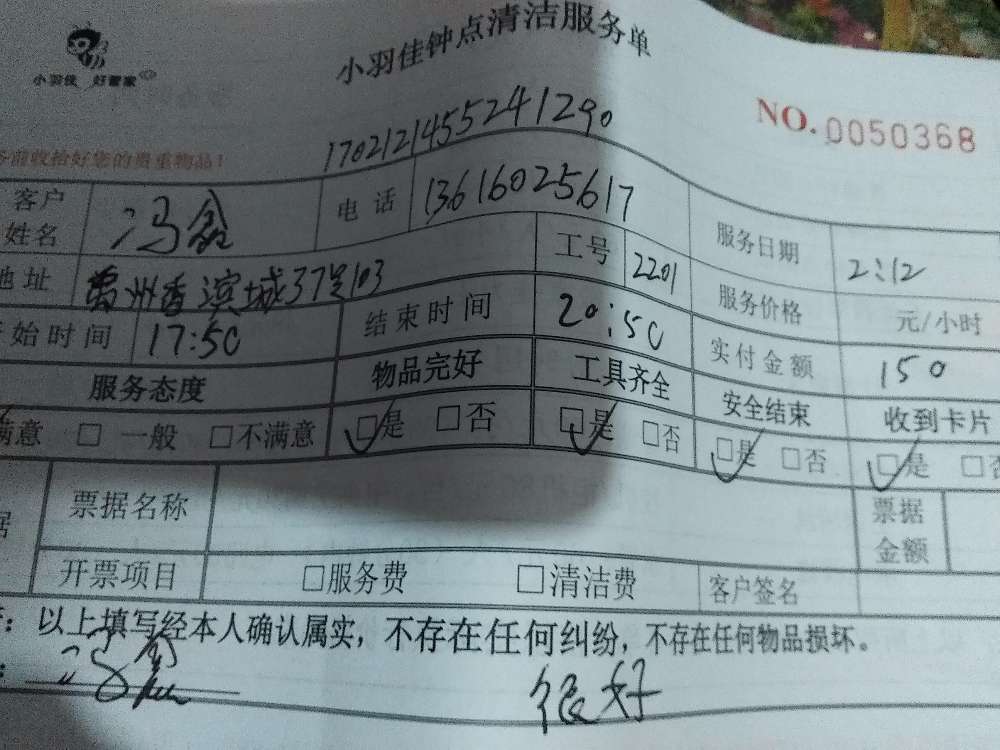 小羽佳 好管家
小羽佳钟点清洁服务单
NO.0050368
前收拾好您的贵重物品!
170212145524 1290
客户姓名 冯鑫 电话 13616025617 服务日期 2:12
地址 禹州香滨城37号103 工号 2201 服务价格 元/小时
始时间 17:50 结束时间 20:50 实付金额 150
服务态度 物品完好 工具齐全 安全结束 收到卡片
满意 □ 一般 □不满意 □是 □否 □是 □否 □是 □否 □是 □否
据 票据名称 票据金额
开票项目 □服务费 □清洁费 客户签名
:以上填写经本人确认属实,不存在任何纠纷,不存在任何物品损坏。
: 冯鑫 很好